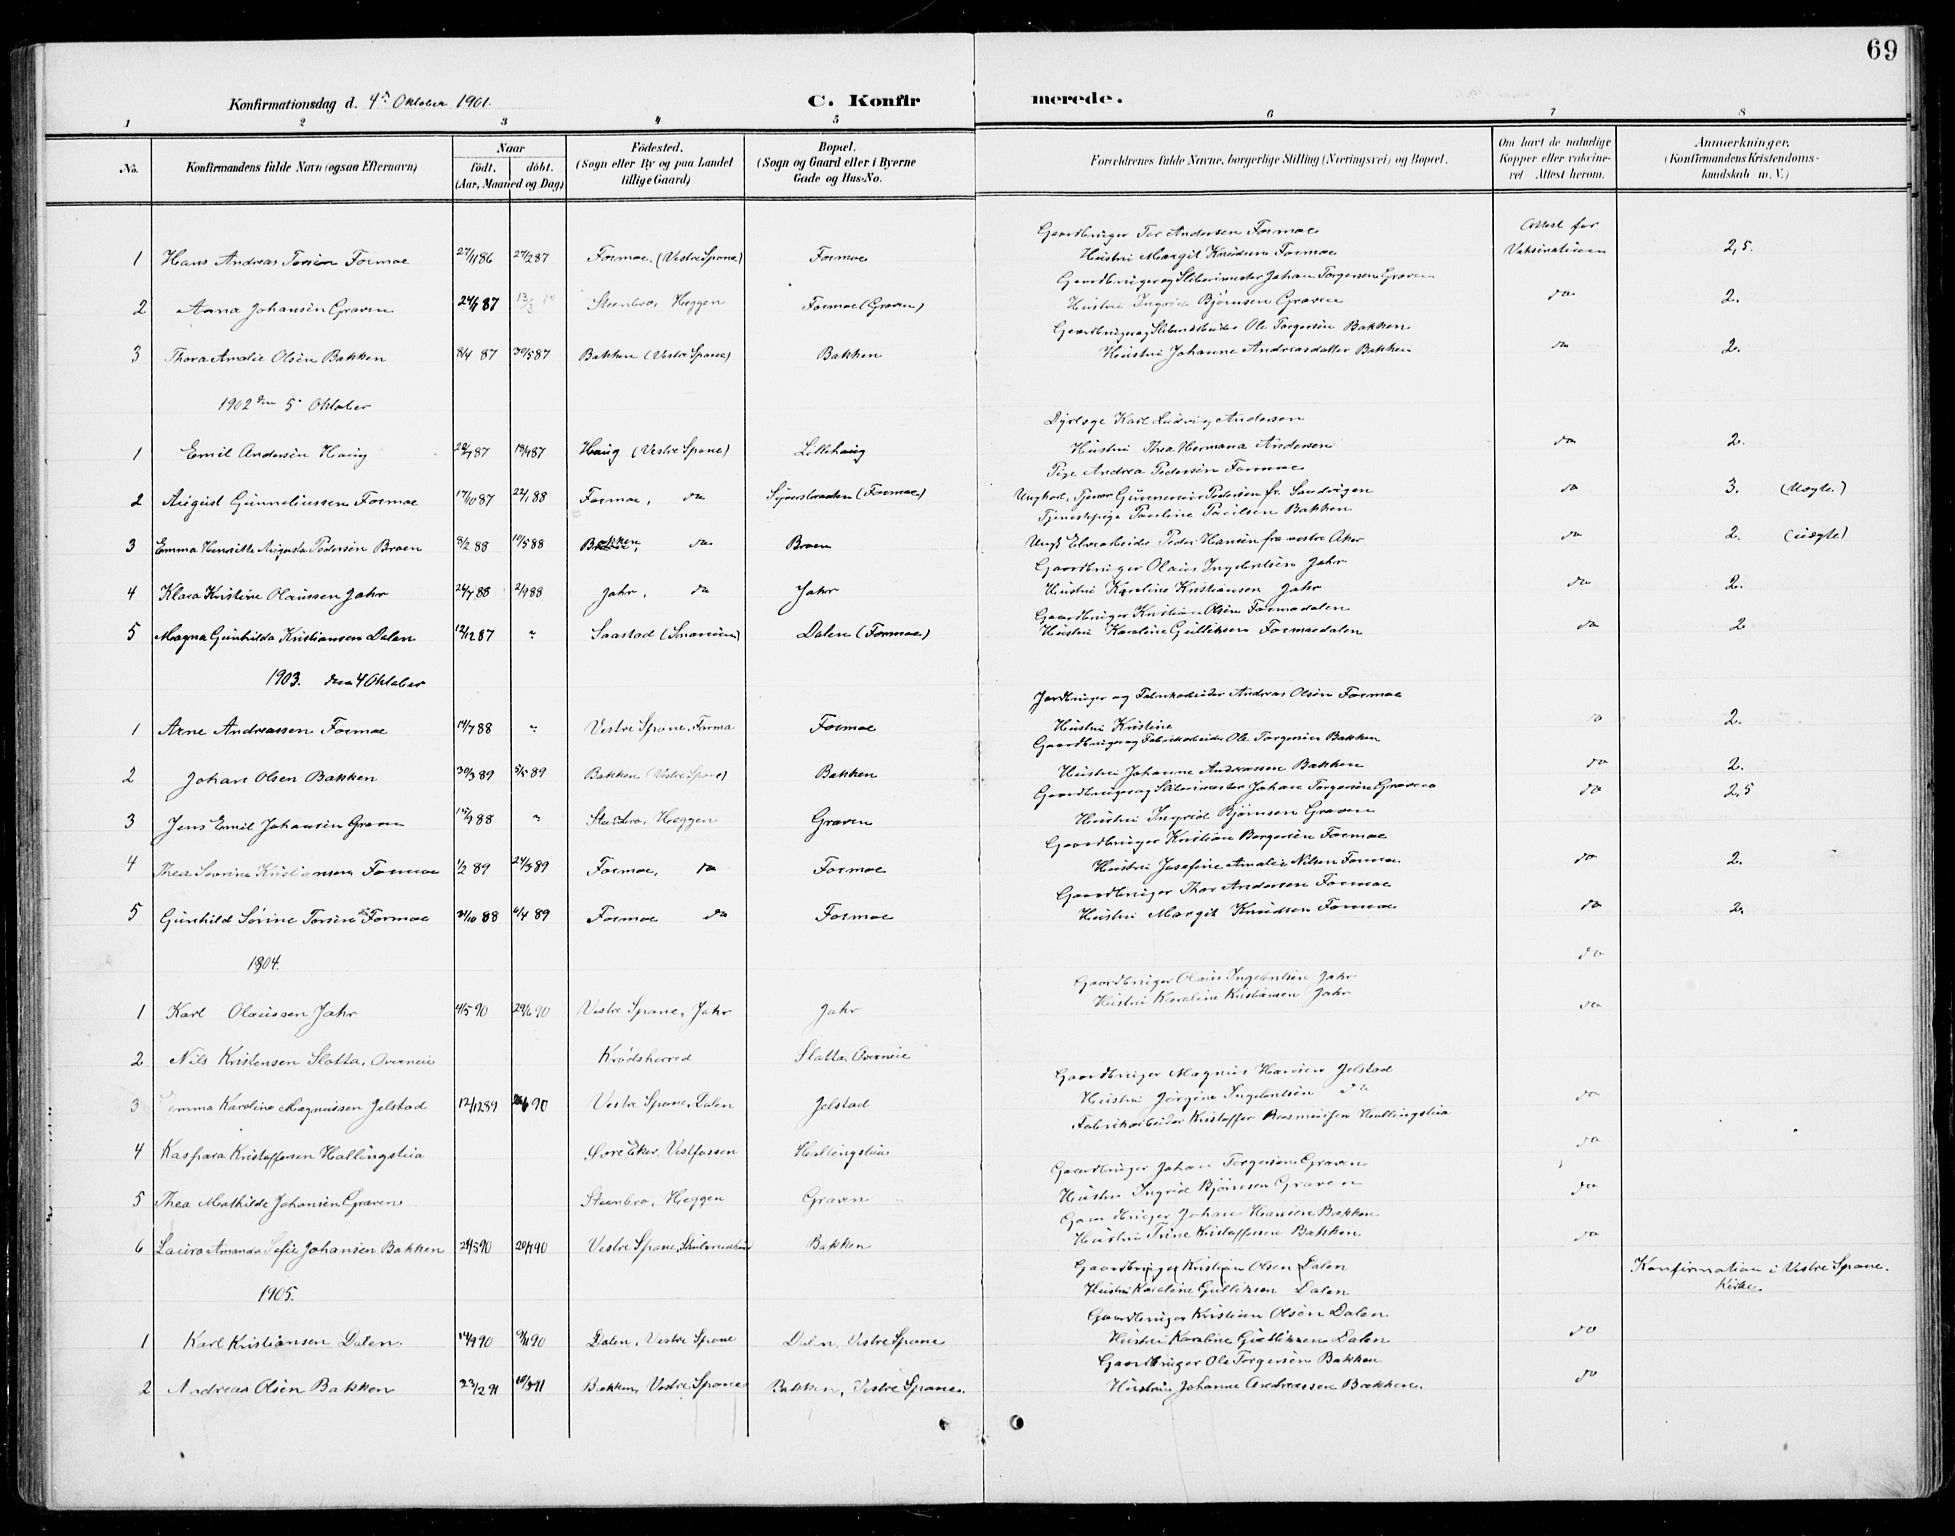 69
Konfirmationsdag d. 4de Oktober 1901. C. Konfirmerede.
1 2 3 4 5 6 7 8
No. Konfirmandens fulde Navn (ogsaa Efternavn) Naar født. døbt. (Aar, Maaned og Dag) Fødested. (Sogn eller By og paa Landet tillige Gaard) Bopæl. (Sogn og Gaard eller i Byerne Gade og Hus-No. Forældrenes fulde Navne, borgerlige Stilling (Næringsvei) og Bopæl. Om havt de naturlige Kopper eller vakcineret Attest herom. Anmærkninger. (Konfirmandens Kristendomskundskab m. V.)
Gaardbruger Tor Andersen Formoe Attest for
1 Hans Andreas Torsen Formoe 27/11 86 27/2 87 Formoe. (Vestre Spone) Formoe Hustru Margit Knudsen Formoe Vaksinationen 2,5.
Gaardbruger og Slibermester Johan Torgersen Graven
2 Anna Johansen Graven 87 13/3 Steenbro, Heggen Formoe (Graven) Hustru Ingrid Bjørnsen Graven do 2.
Gaardbruger og Ole Torgersen Bakken
3 Thora Amalie Olsen Bakken 8/4 87 30/5 87 Bakken (Vestre Spone) Bakken Hustru Johanne Andreasdatter Bakken do 2.
1902 den 5 Oktober
Karl Ludvig Andersen
1 Emil Andersen Haug 87 87 Haug (Vestre Spone) Lillehaug Hustru Thea Hermana Andersen do 2.
Pige Andrea Pedersen Formoe
2 August Gunneliussen Formoe 17/10 87 22/1 88 Formoe, do (Formoe) Ungkarl, Tjener Gunnerius Pedersen fr. Sandvigen do 3. (Uægte.)
Tjenestepige Pauline Paulsen Bakken
3 Emma Henriette Augusta Pedersen Braen 8/2 88 10/5 88 Bakken, do Braen Ungk Peder Hansen fra vestre Aker do 2. (uægte)
Gaardbruger Olaus Ingebretsen Jahr
4 Klara Kristine Olaussen Jahr 24/7 88 2/9 88 Jahr, do Jahr Hustru Karoline Kristiansen Jahr do 2.
Gaardbruger Kristian Olsen Formodalen
5 Magna Gunhilda Kristiansen Dalen 12/12 87 " Saastad (Snarum) Dalen (Formoe) Hustru Karoline Gulliksen Formoedalen do 2
1903. den 4 Oktober
Jordbruger og Fabrikarbeider Andreas Olsen Formoe
1 Arne Andreassen Formoe 14/7 88 " Vestre Spone, Formo Formoe Hustru Kristine do 2.
Gaardbruger og Fabrikarbeider Ole Torgersen Bakken
2 Johan Olsen Bakken 30/3 89 5/5 89 Bakken (Vestre Spone) Bakken Hustru Johanne Andreassen Bakken do 2.
Gaardbruger og Slibermester Johan Torgersen Graven do 2,5
3 Jens Emil Johansen Graven 15/9 88 " Steenbro, Heggen Graven Hustru Ingrid Bjørnsen Graven
Gaardbruger Kristian Borgersen Formoe
4 Thea Severine Kristiansen Formoe 1/2 89 24/3 89 Formoe, do Formoe Hustru Josefine Amalie Nilsen Formoe do 2.
Gaardbruger Thor Andersen Formoe
5 Gunhild Sørine Torsen Formoe 31/10 88 6/4 89 Formoe do Formoe Hustru Margit Knudsen Formoe do 2.
1904. do
Gaardbruger Olaus Ingebretsen Jahr
1 Karl Olaussen Jahr 4/5 90 29/6 90 Vestre Spone, Jahr Jahr Hustru Karoline Kristiansen Jahr do
2 Nils Kristensen Slatta, Overneie Krødsherred Slatta, Overneie
Gaardbruger Magnus Hansen Jelstad
3 Emma Karoline Magnussen Jelstad 12/12 89 90 Vestre Spone, Dalen Jelstad Hustru Jørgine Ingebretsen do do
Fabrikarbeider Kristoffer Rasmussen Hallingstua
4 Kaspara Kristoffersen Hallingstua Øvre Eker, Vestfossen Hallingstua do
Gaardbruger Johan Torgersen Graven
5 Thea Mathilde Johansen Graven Steenbro, Heggen Graven Hustru Ingrid Bjørnsen Graven do
Gaardbruger Johan Hansen Bakken
6 Laura Amanda Sofie Johansen Bakken 24/5 90 20/7 90 Vestre Spone, Bakken Hustru Trine Kristoffersen Bakken do
Gaardbruger Kristian Olsen Dalen Konfirmation i Vestre Spone
1905. Hustru Karoline Gulliksen Dalen Kirke.
Gaardbruger Kristian Olsen Dalen
1 Karl Kristiansen Dalen. 14/9 90 9/11 90 Dalen, Vestre Spone Dalen, Vestre Spone Hustru Karoline Gulliksen Dalen do
Gaardbruger Ole Torgersen Bakken
2 Andreas Olsen Bakken 23/2 91 91 Bakken, Vestre Spone Bakken, Vestre Spone. Hustru Johanne Andreassen Bakken. do